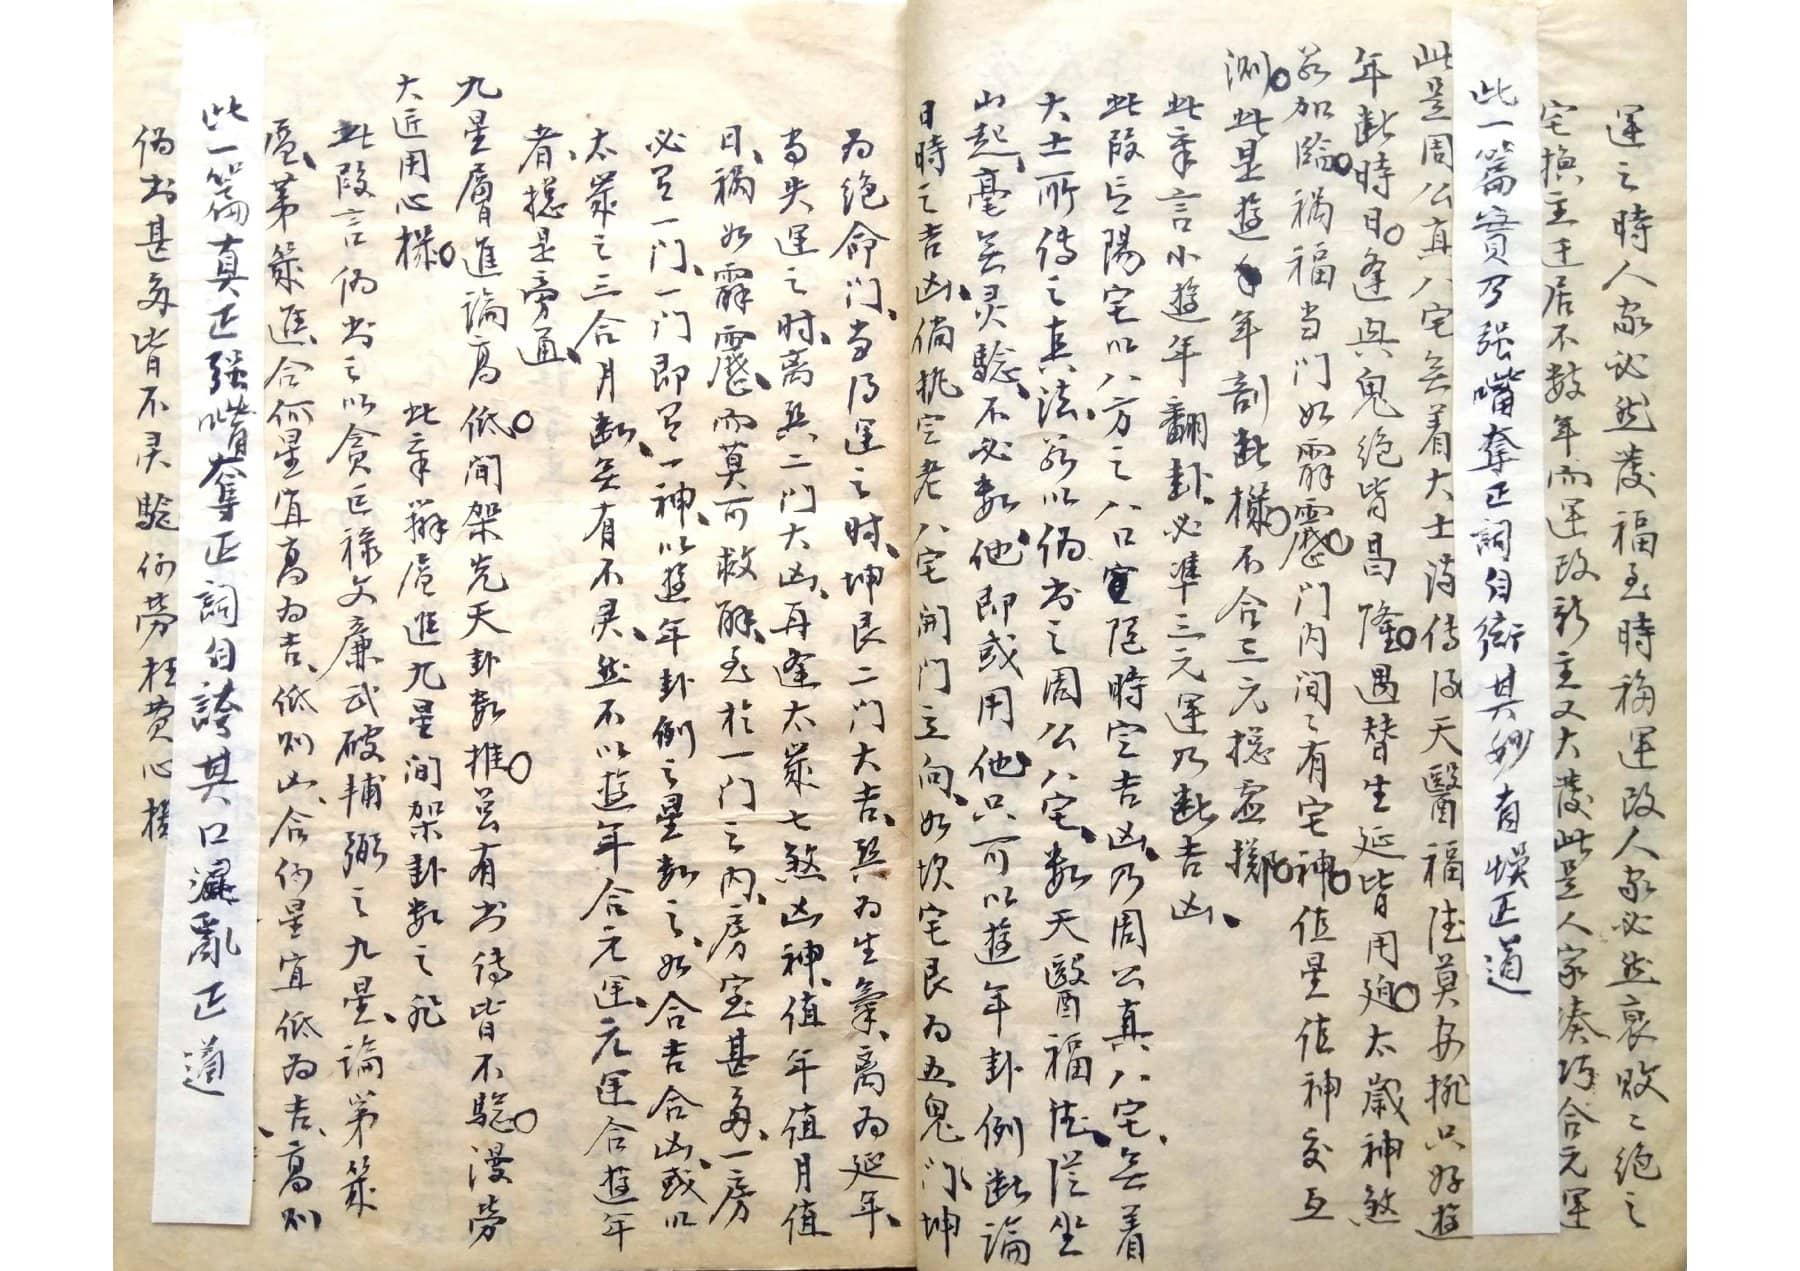 運之時人家必然發福至時移運改人家必然衰敗之絕之
宅換主迁居不数年而運改新主又大發此是人家湊巧合元運
此一篇實乃强嘴奪正詞自衒其妙有悞正道
此是周公真八宅無着大士諄傳授天醫福德莫安排只好遊
年断時日逢興鬼絕皆昌隆遇替生延皆用廹太歲神煞
若加臨禍福当门如霹靂门内间之有宅神值星值神交互
测此是遊年年剖断樣不合三元摠虛擲
此章言小遊年翻卦必準三元運乃断吉凶
此段言陽宅以八方之八口宜随時定吉凶乃周公真八宅無着
大士所傳之真法若以偽书之周公八宅数天醫福德從坐
山起毫無灵驗不必数他即或用他只可以遊年卦例断論
日時之吉凶倘执定老八宅開门立向如坎宅艮为五鬼门坤
为绝命门当得運之时坤艮二门大吉巽为生氣离为延年
当失運之时离巽二门大凶再逢太歲七煞凶神值年值月值
日禍如霹靂而莫可救解至於一门之内房室甚多一房
必有一门一门即有一神以遊年卦例之星数之如合吉合凶或以
太歲之三合月断無有不灵然不以遊年合元運元運合遊年
者摠是旁通
九星層進論高低间架先天卦数推虽有书传皆不騐漫劳
大匠用心機 此章辨層進九星间架卦数之非
此段言偽书之以貪巨祿文廉武破辅弼之九星論第幾
層第幾進合何星宜高为吉低则凶合何星宜低为吉高则
此一篇真正强嘴奪正詞自誇其口混亂正道
偽书甚多皆不灵驗何劳枉費心機